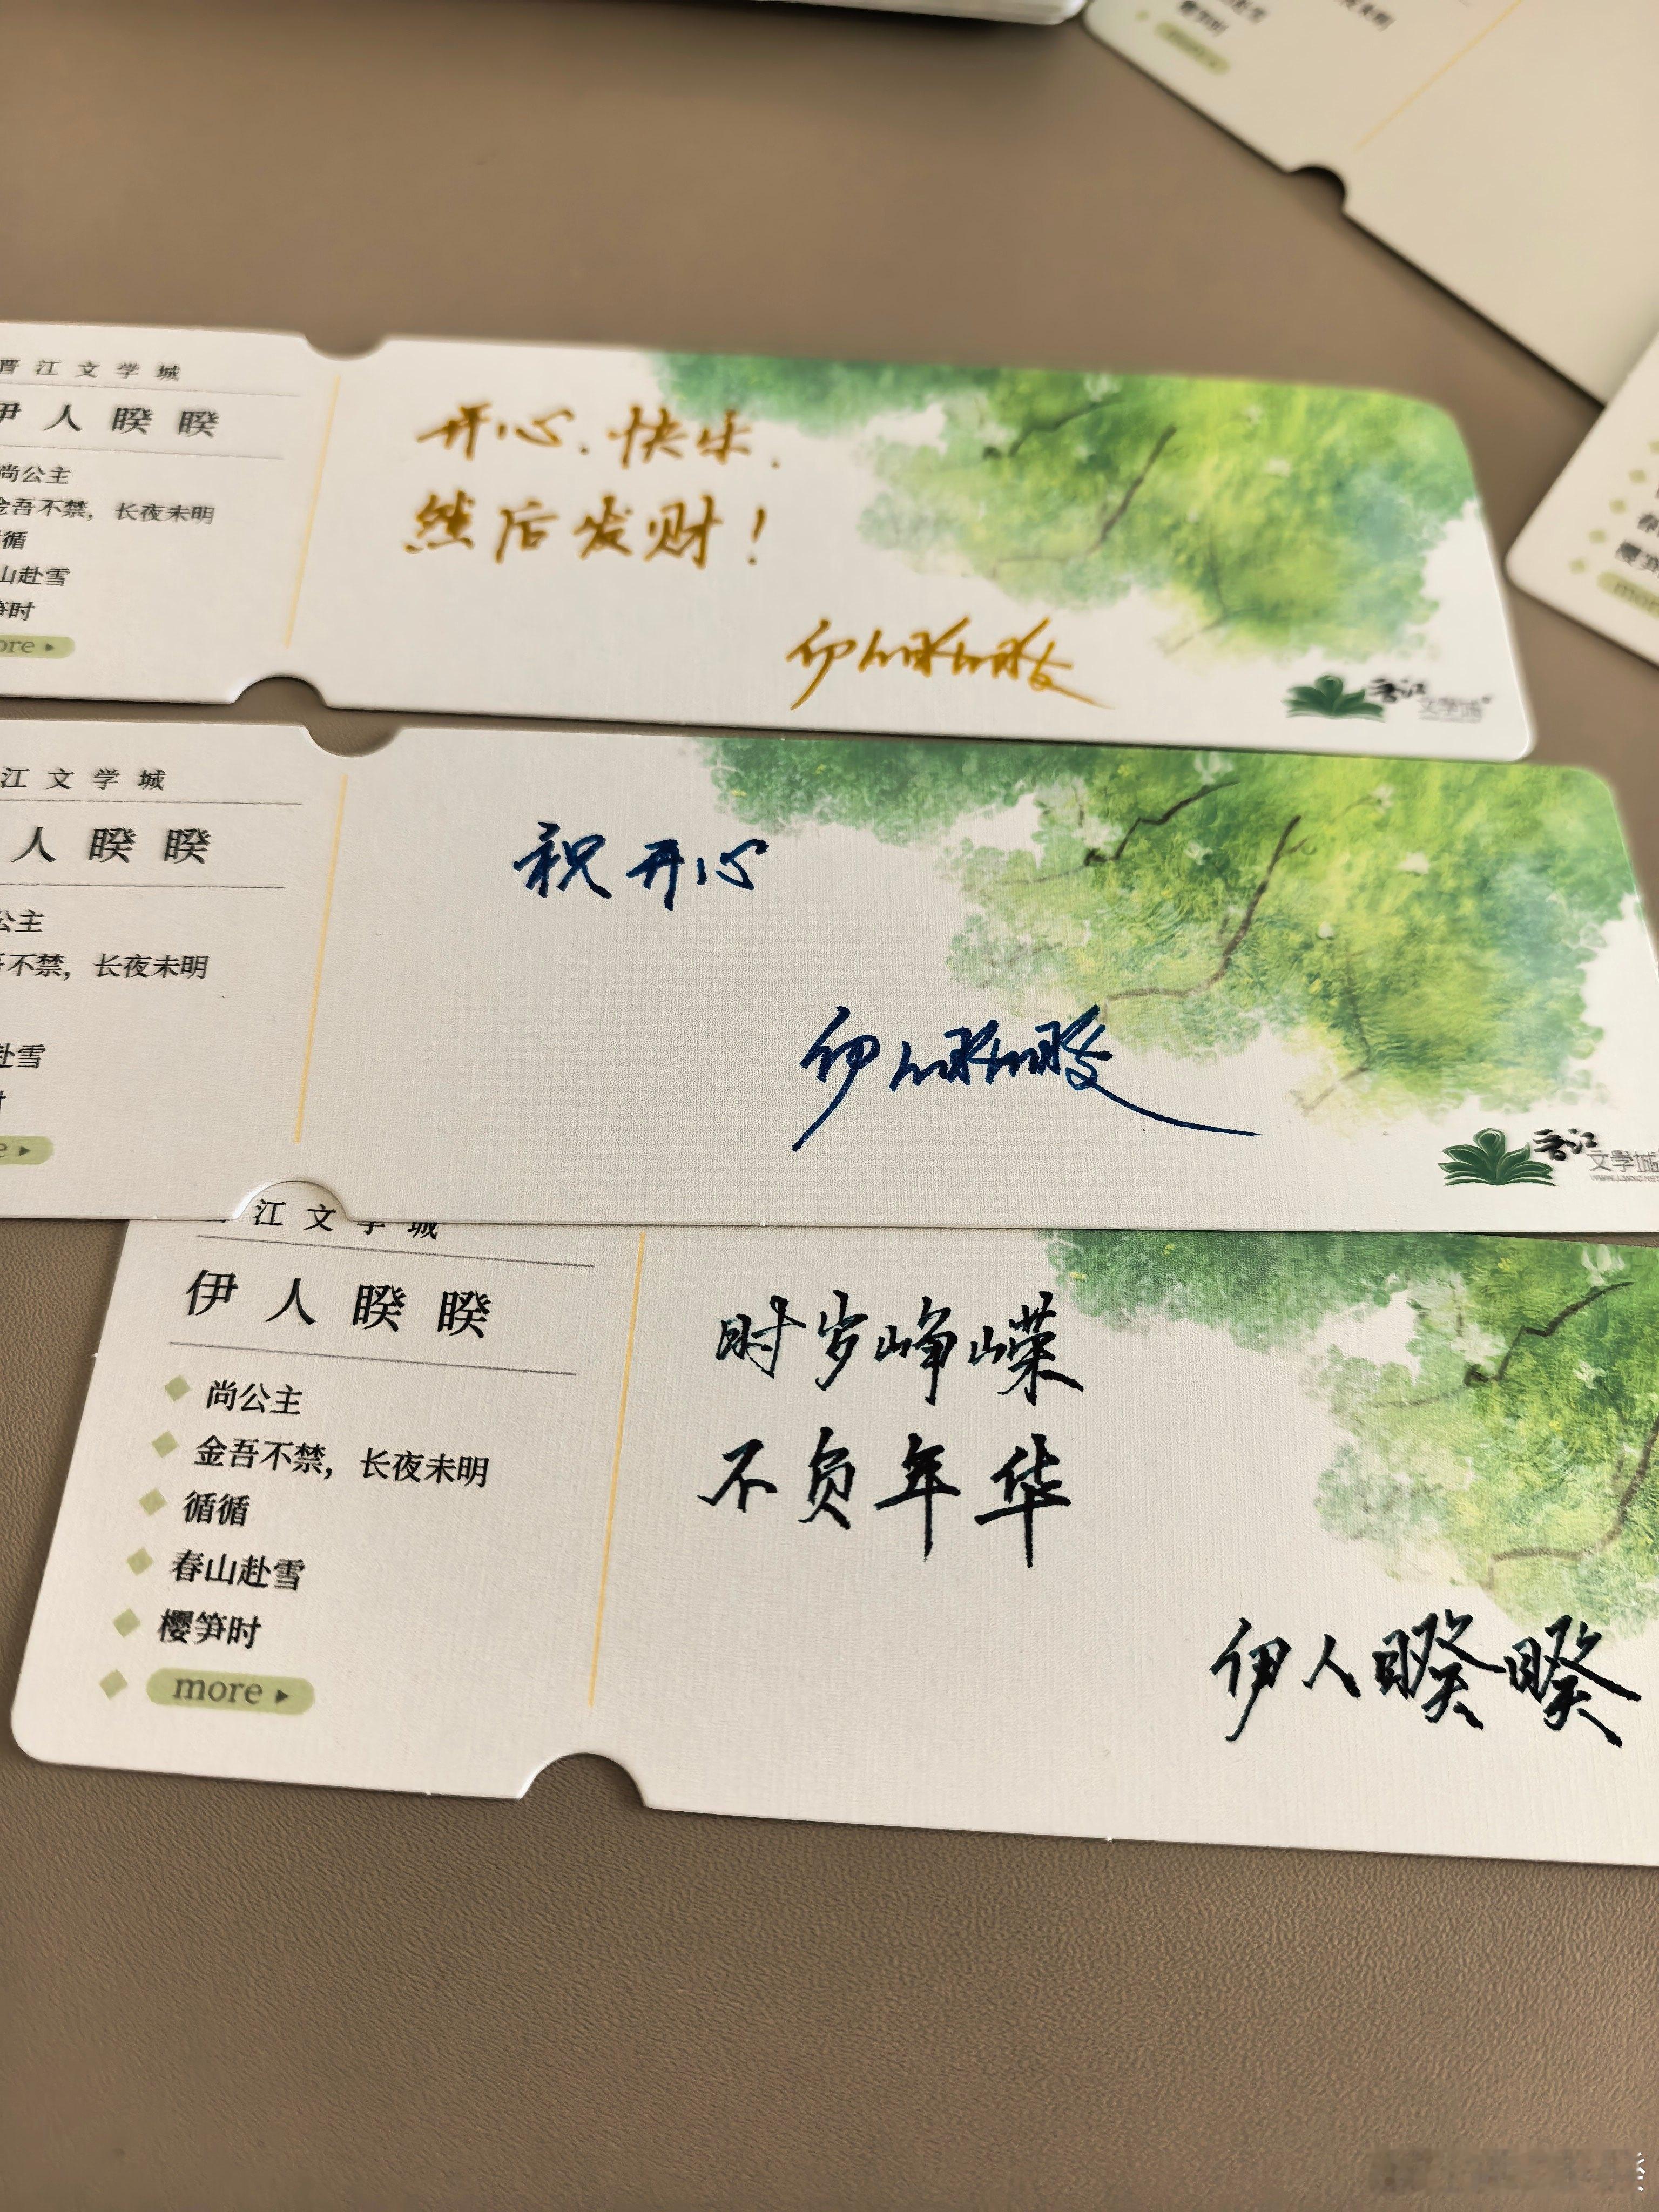 晋江文学城
伊人睽睽
尚公主
金吾不禁，长夜未明
循
山赴雪
笋时
ore
开心、快乐、
然后发财！
伊人睽睽
晋江
文学城
江文学城
人睽睽
公主
不禁，长夜未明
赴雪
时
e
祝开心
伊人睽睽
晋江
文学城
江文学城
伊人睽睽
尚公主
金吾不禁，长夜未明
循循
春山赴雪
樱笋时
more
时岁峥嵘
不负年华
伊人睽睽
樱笋时
春
樱笋
more